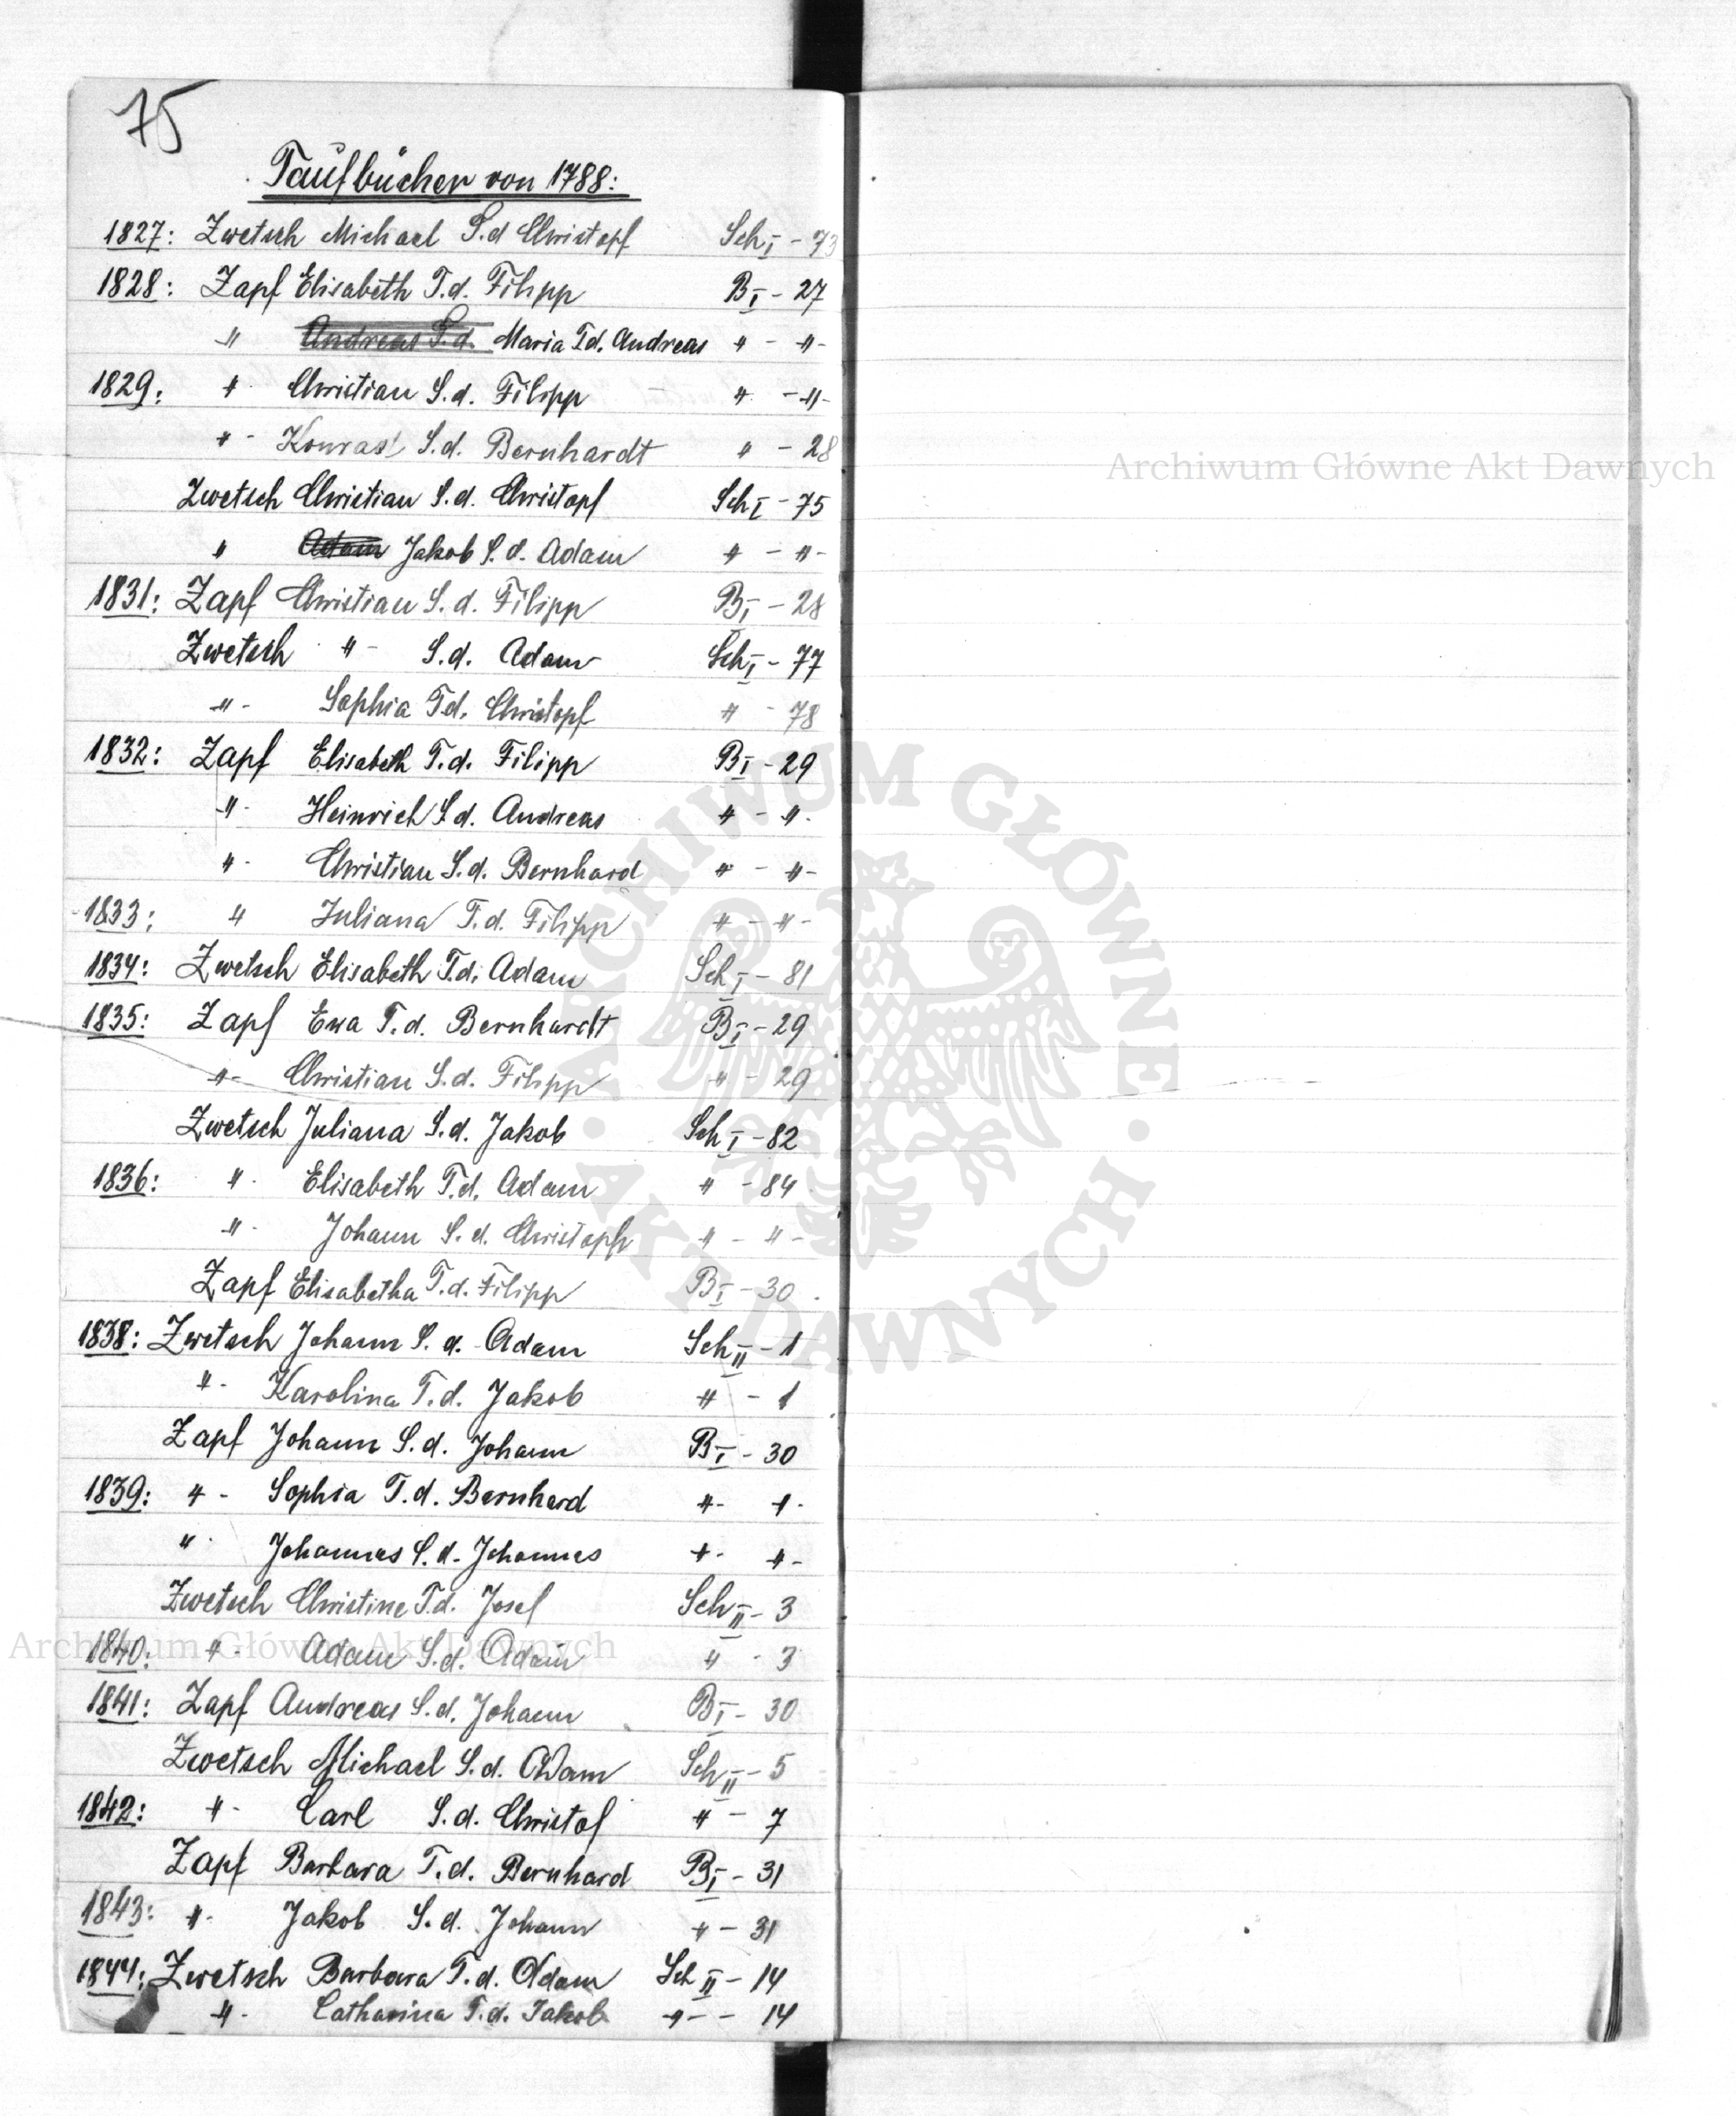 75
Taufbücher von 1788:
1827: Zwetsch Michael S.d Christopf Sch I - 73
1828: Zapf Elisabeth T.d. Filipp B I - 27
-"- Andreas S.d. Maria T.d. Andreas " - "-
1829: " Christian S.d. Filipp " - "-
" - Konrad S.d. Bernhardt " - 28
Zwetsch Christian S.d. Christopf Sch I - 75
" Adam Jakob S.d. Adam " - "-
1831: Zapf Christian S.d. Filipp B I - 28
Zwetsch " - S.d. Adam Sch I - 77
-"- Sophia T.d. Christopf " - 78
1832: Zapf Elisabeth T.d. Filipp B I - 29
-"- Heinrich S.d. Andreas " - "-
"- Christian S.d. Bernhard " - "-
1833: " Juliana T.d. Filipp " - "-
1834: Zwetsch Elisabeth T.d. Adam Sch I - 81
1835: Zapf Ewa T.d. Bernhardt B I - 29
-"- Christian S.d. Filipp " - 29
Zwetsch Juliana S.d. Jakob Sch I - 82
1836: "- Elisabeth T.d. Adam " - 84
-"- Johann S.d. Christoph " - "-
Zapf Elisabetha T.d. Filipp B I - 30
1838: Zwetsch Johann S.d. Adam Sch II - 1
"- Karolina T.d. Jakob " - 1
Zapf Johann S.d. Johann B I - 30
1839: " - Sophia T.d. Bernhard "- "-
"- Johannes S.d. Johannes "- "-
Zwetsch Christine T.d. Josef Sch II - 3
1840: "- Adam S.d. Adam " - 3
1841: Zapf Andreas S.d. Johann B I - 30
Zwetsch Michael S.d. Adam Sch II - 5
1842: "- Carl S.d. Christof " - 7
Zapf Barbara T.d. Bernhard B I - 31
1843: "- Jakob S.d. Johann " - 31
1844: Zwetsch Barbara T.d. Adam Sch II - 14
-"- Catharina T.d. Jakob -"- - 14
Archiwum Główne Akt Dawnych
ARCHIWUM GŁÓWNE · AKT DAWNYCH ·
Archiwum Główne Akt Dawnych